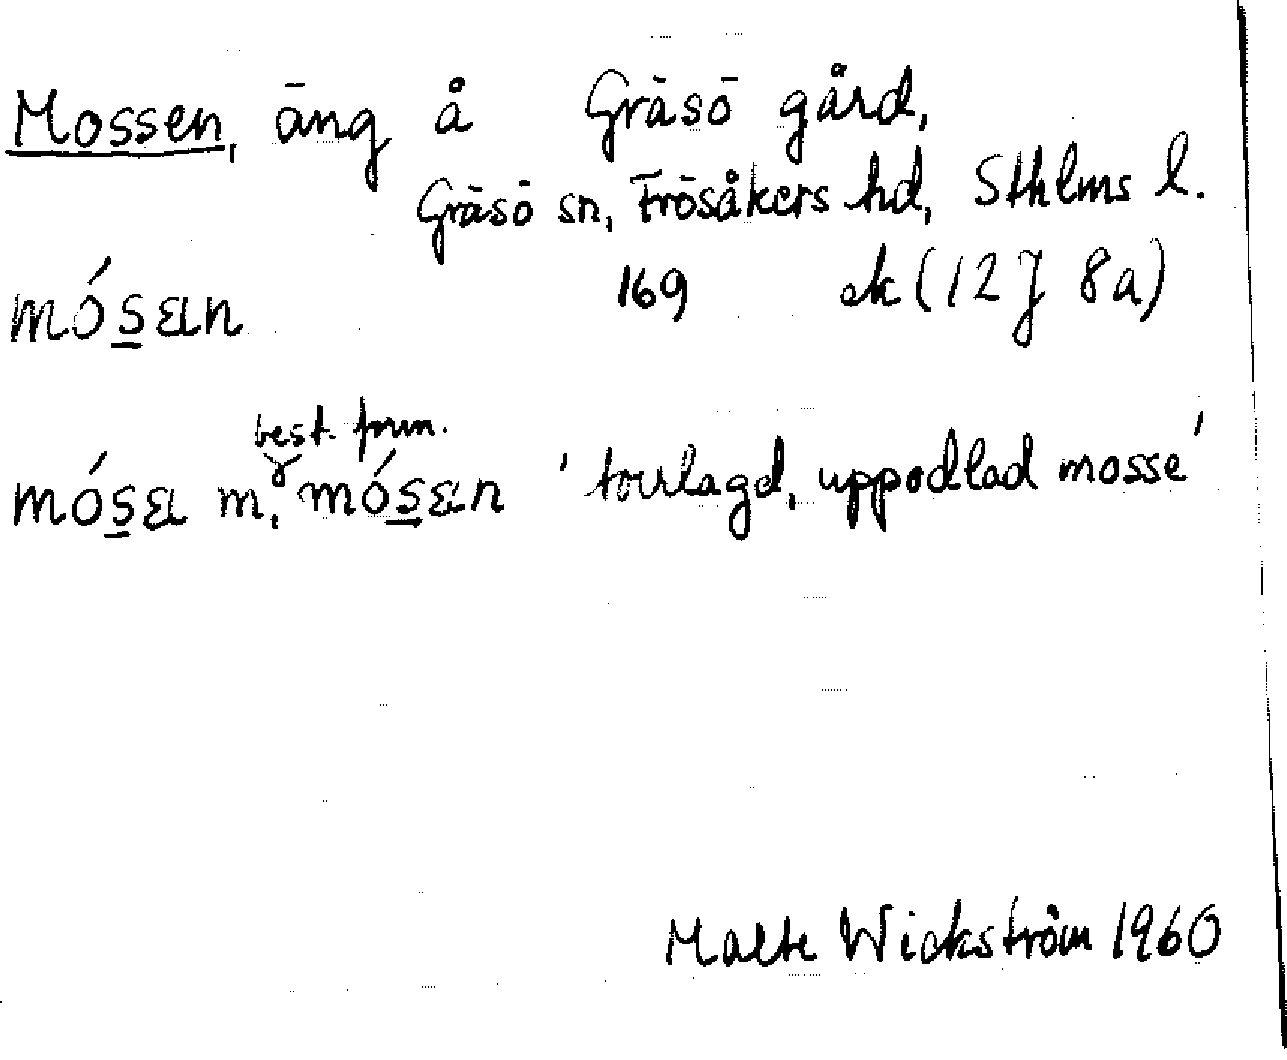 Mossen, äng å Gräsö gård,
Gräsö sn, Frösåkers hd, Sthlms l.
mós̲ən 169 ek (12J 8a)
best. form.
mós̲ə m, mós̲ən 'torrlagd, uppodlad mosse'
Malte Wickström 1960